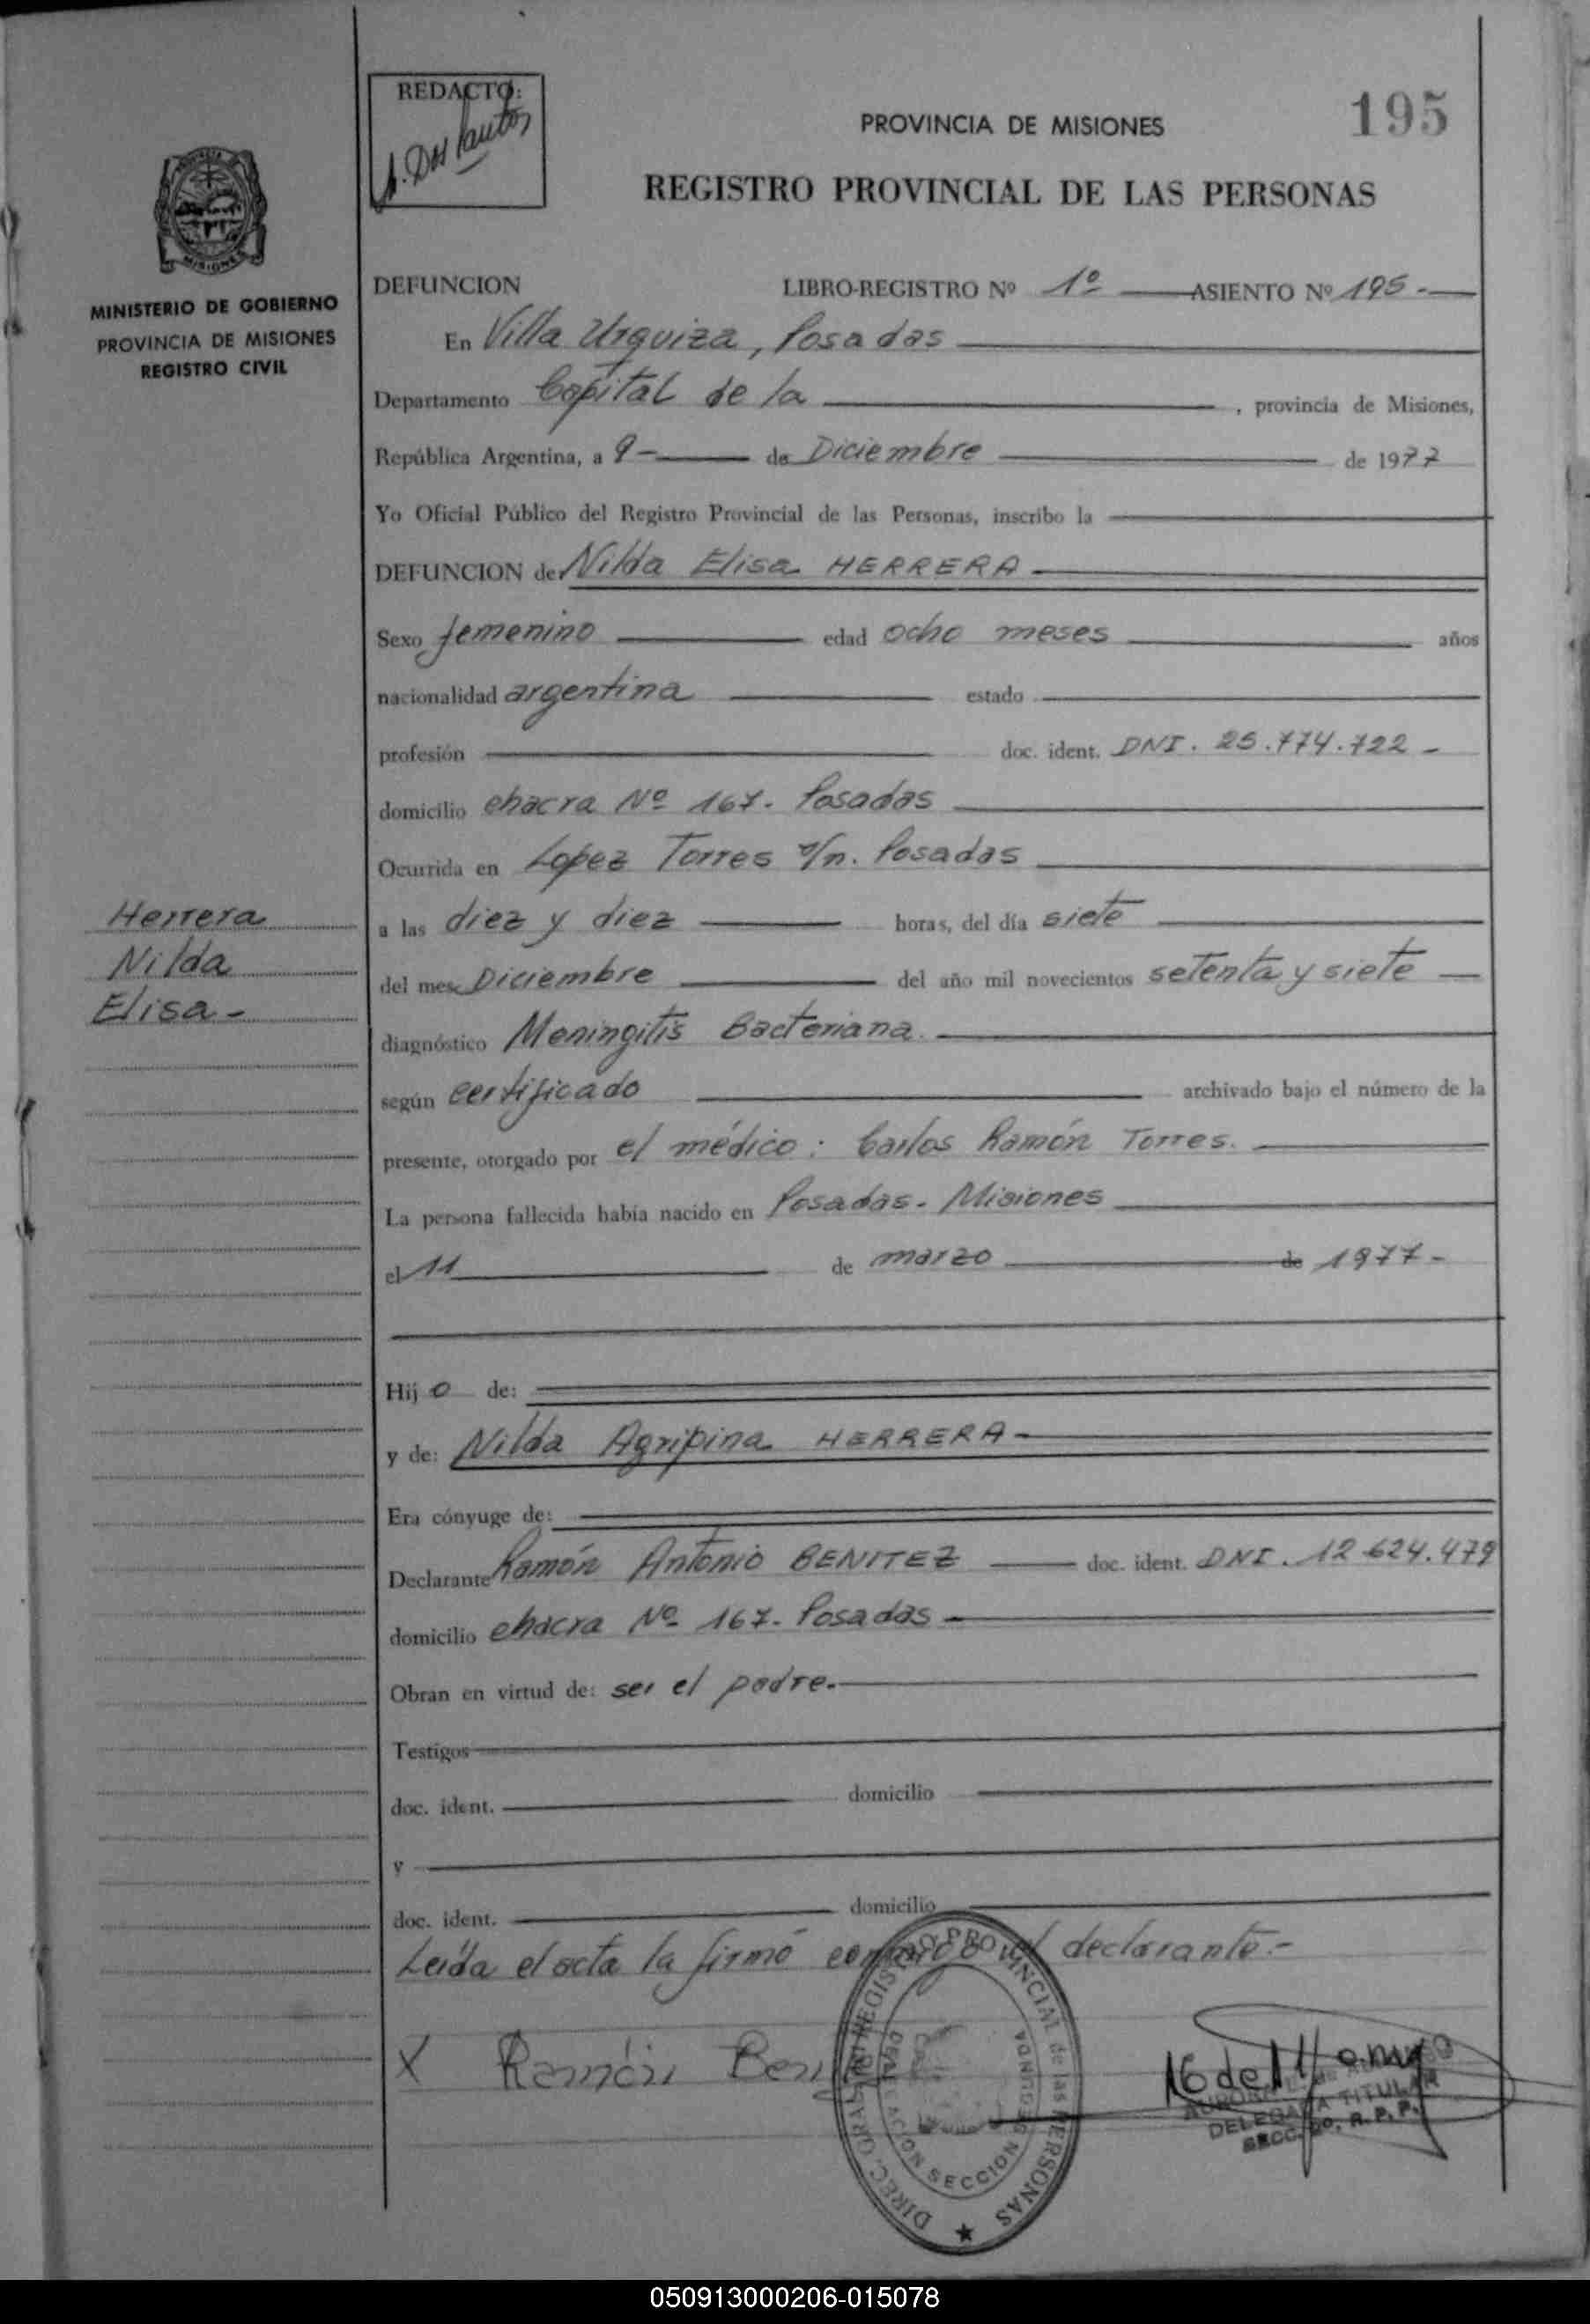 REDACTO:
A. Dos Santos
PROVINCIA DE MISIONES
195
REGISTRO PROVINCIAL DE LAS PERSONAS
MISIONES
MINISTERIO DE GOBIERNO
PROVINCIA DE MISIONES
REGISTRO CIVIL
DEFUNCION LIBRO-REGISTRO Nº 1º ASIENTO Nº 195.-
En Villa Urquiza, Posadas
Departamento Capital de la , provincia de Misiones,
República Argentina, a 9- de Diciembre de 1977
Yo Oficial Público del Registro Provincial de las Personas, inscribo la
DEFUNCION de Nilda Elisa HERRERA
Sexo femenino edad ocho meses años
nacionalidad argentina estado
profesión doc. ident. DNI. 25.774.722 -
domicilio chacra Nº 167. Posadas
Ocurrida en Lopez Torres s/n. Posadas
Herrera
Nilda
Elisa-
a las diez y diez horas, del día siete
del mes Diciembre del año mil novecientos setenta y siete
diagnóstico Meningitis Bacteriana.
según certificado archivado bajo el número de la
presente, otorgado por el médico: Carlos Ramón Torres.
La persona fallecida había nacido en Posadas. Misiones
el 11 de marzo de 1977-
Hij o de:
y de: Nilda Agripina HERRERA-
Era cónyuge de:
Declarante Ramón Antonio BENITEZ doc. ident. DNI. 12.624.479
domicilio chacra Nº 167. Posadas
Obran en virtud de: ser el padre.
Testigos
doc. ident. domicilio
y
doc. ident. domicilio
Leída el acta la firmó conmigo el declarante.-
X Ramón
DIREC. GRAL. DEL REGISTRO PROVINCIAL de las PERSONAS
DELEGACION SECCION SEGUNDA
DELEGADA TITULAR
SECC. 2da. R. P. P.
050913000206-015078